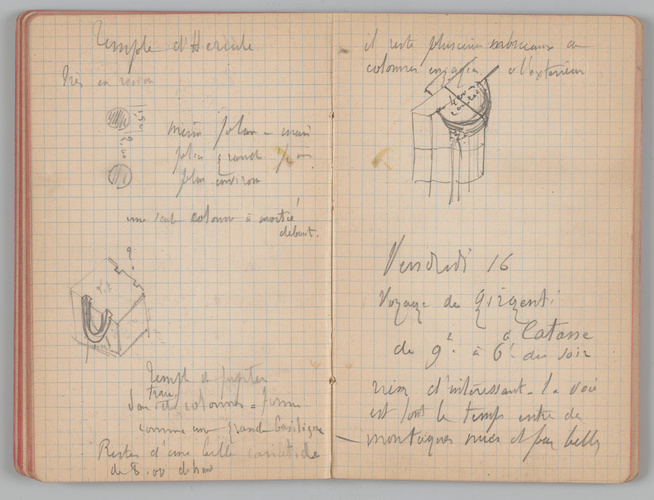 Temple d'Hercule
très en ruine
1,50
2,00
même plan - mais
plus grand
plus environ
une seule colonne à moitié
debout.
Temple de Jupiter
colonnes
comme une grande basilique
Restes d'une belle cariatide
de 8.00 de haut
il reste plusieurs morceaux de
colonnes engagées à l'extérieur
Vendredi 16
Voyage de Girgenti
à Catane
de 9h. à 6h. du soir
rien d'intéressant. la voie
est tout le temps entre des
montagnes nues et peu belles